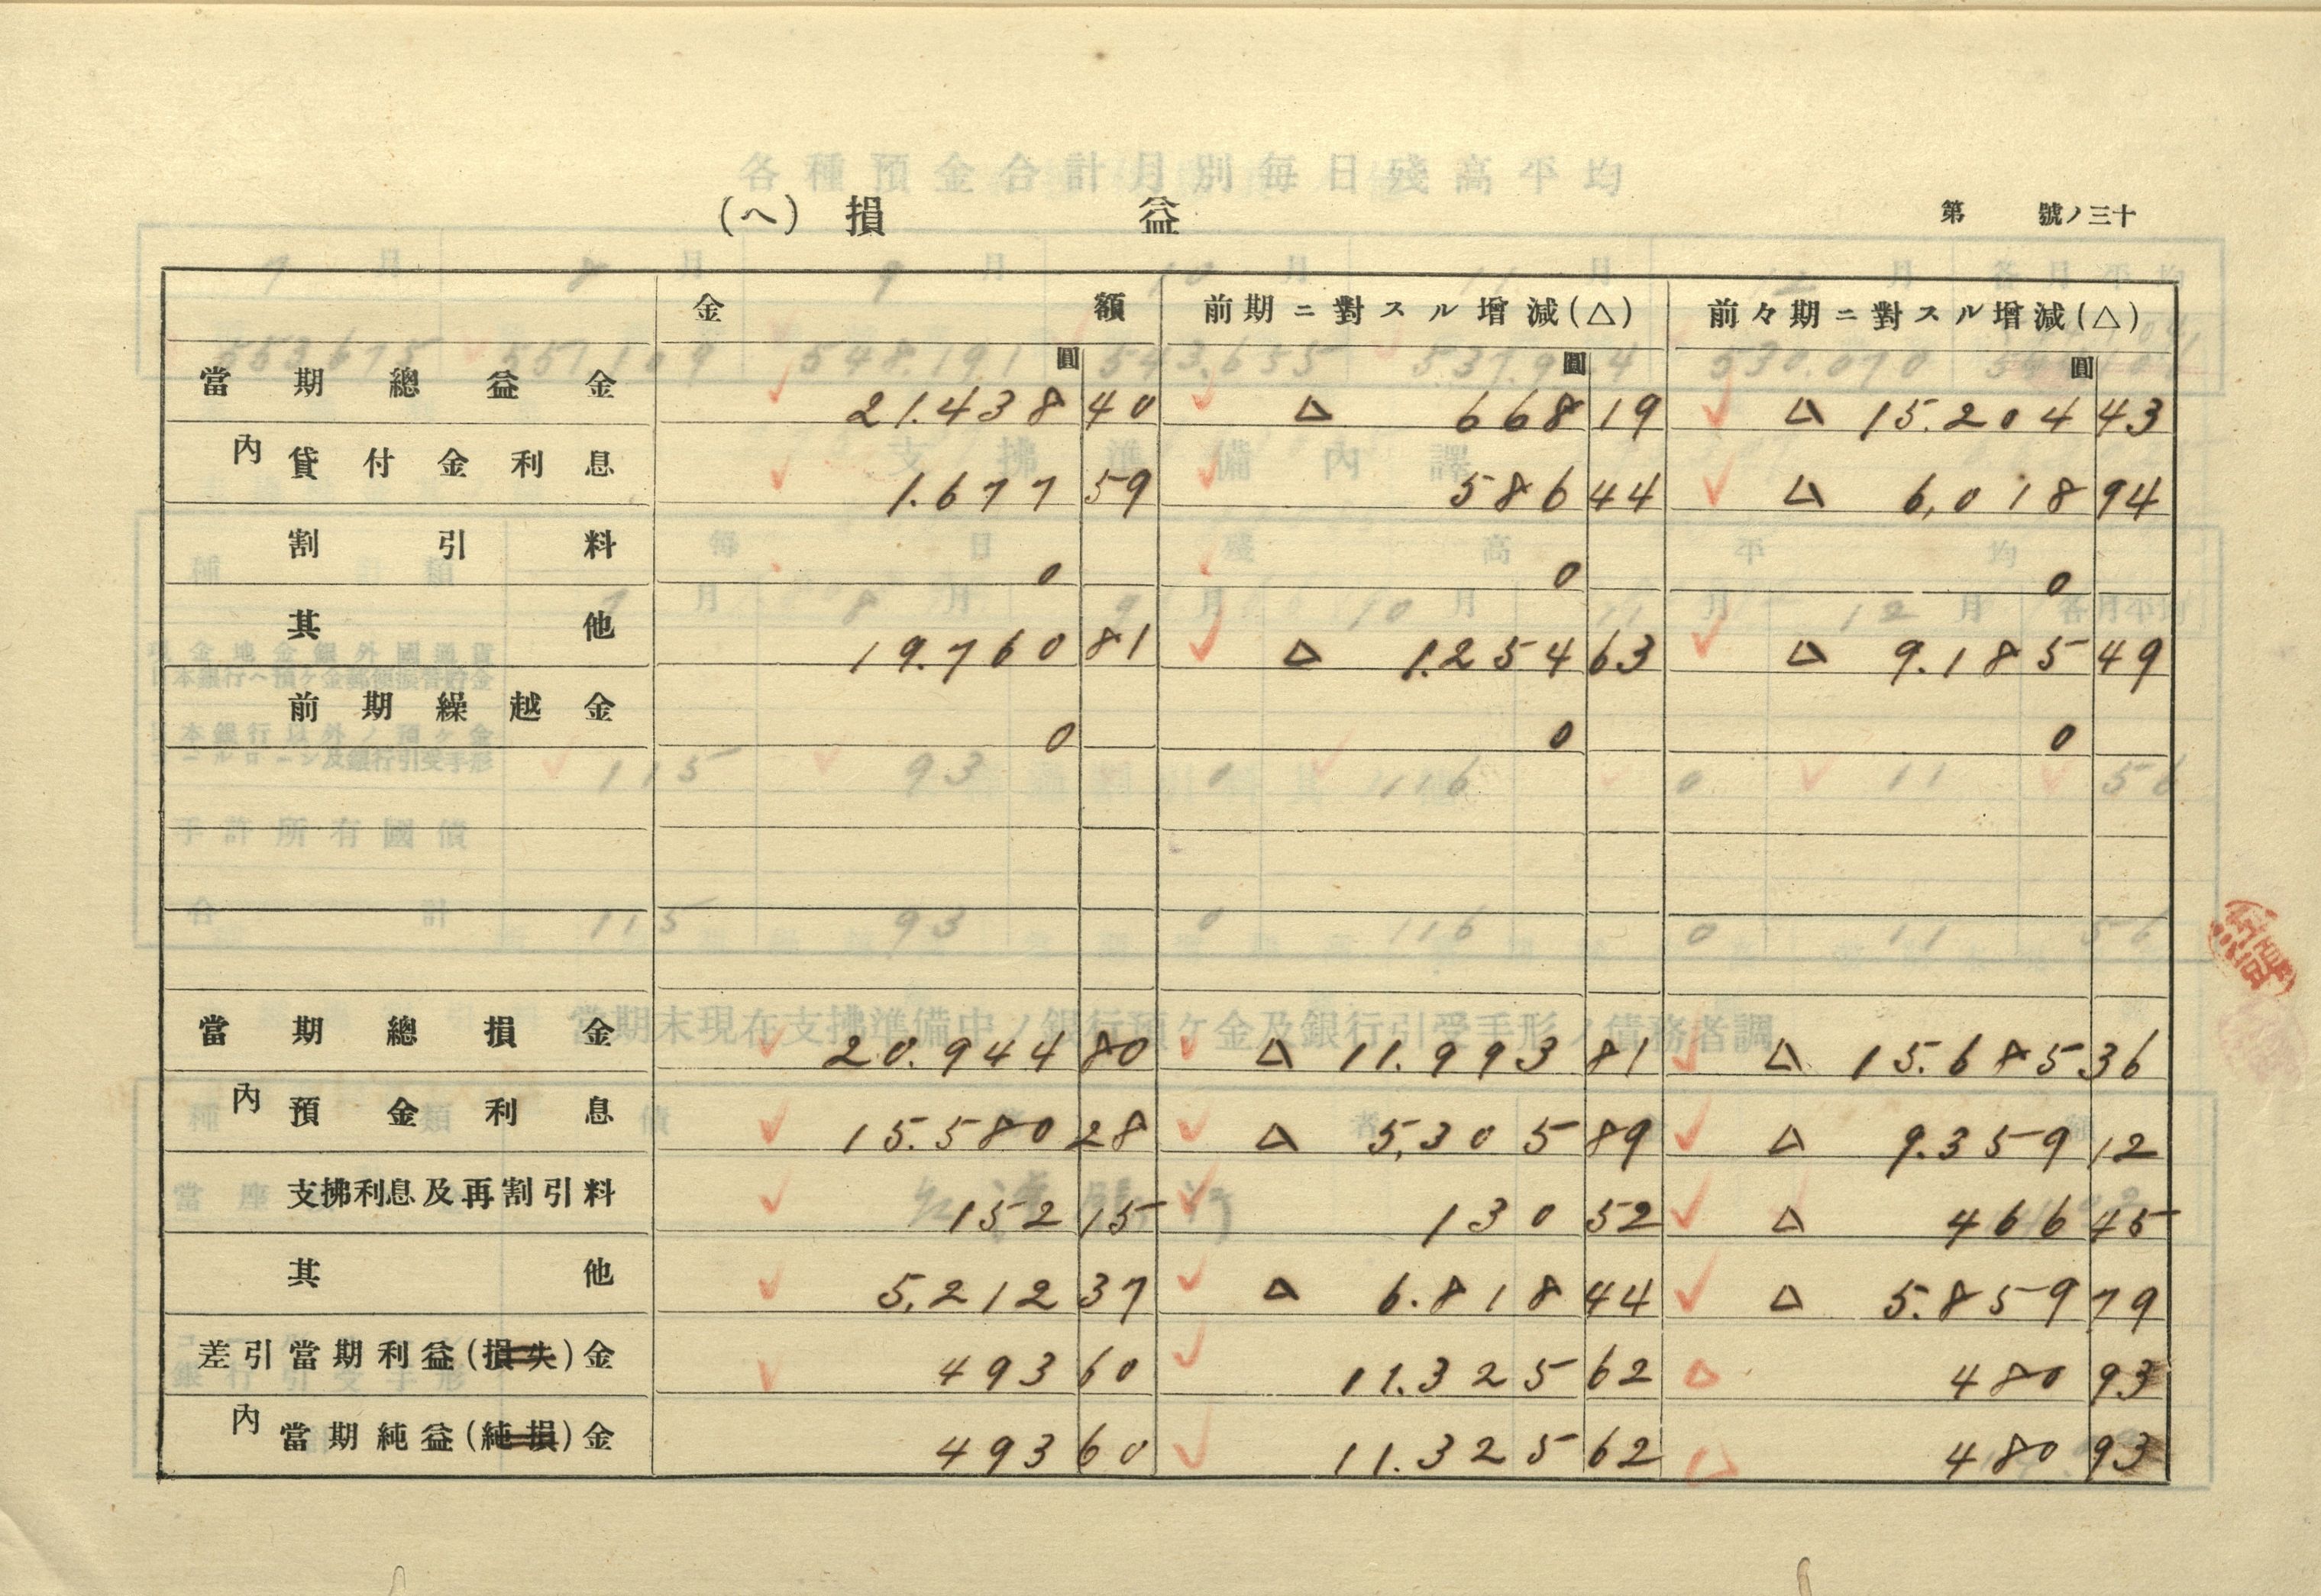 (ヘ) 損 益
第 號ノ三十
金 額 前期ニ對スル增減(△) 前々期ニ對スル增減(△)
圓 圓 圓
當期總益金 21.438 40 △ 668 19 △ 15.204 43
內 貸付金利息 1.677 59 586 44 △ 6,018 94
割引料 0 0 0
其他 19.760 81 △ 1.254 63 △ 9.185 49
前期繰越金 0 0 0
當期總損金 20.944 80 △ 11.993 81 △ 15.685 36
內 預金利息 15.580 28 △ 5,305 89 △ 9.359 12
支拂利息及再割引料 152 15 130 52 △ 466 45
其他 5.212 37 △ 6.818 44 △ 5.859 79
差引當期利益(損失)金 493 60 11.325 62 △ 480 93
內 當期純益(純損)金 493 60 11.325 62 △ 480 93